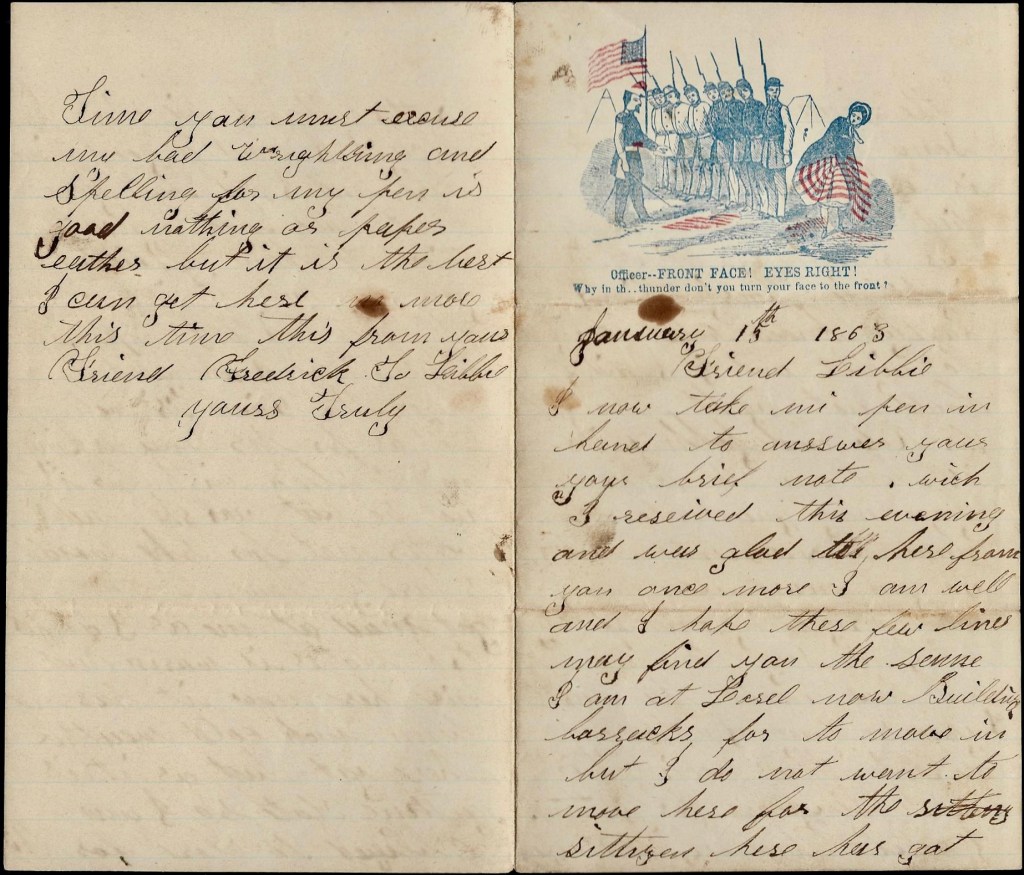 Officer--FRONT FACE! EYES RIGHT!
Why in th..thunder don't you turn your face to the front?
Januuary 15th 1863
Friend Libbie
I now take mi pen in
hand to anssuer your
your brief note . wich
I reseived this evening
and was glad to here from
you once more I am well
and I hope these few lines
may find you the seme
I am at Lorel now Building
barracks for to move in
but I do not want to
move here for the
sittizen here has got
Time you must excuse
my bad Wrightsing and
Spelling for my pen is
good nothing or paper
eather but it is the best
I can get here no more
this time this from your
Friend Fredrick To Libbie
yours Truly